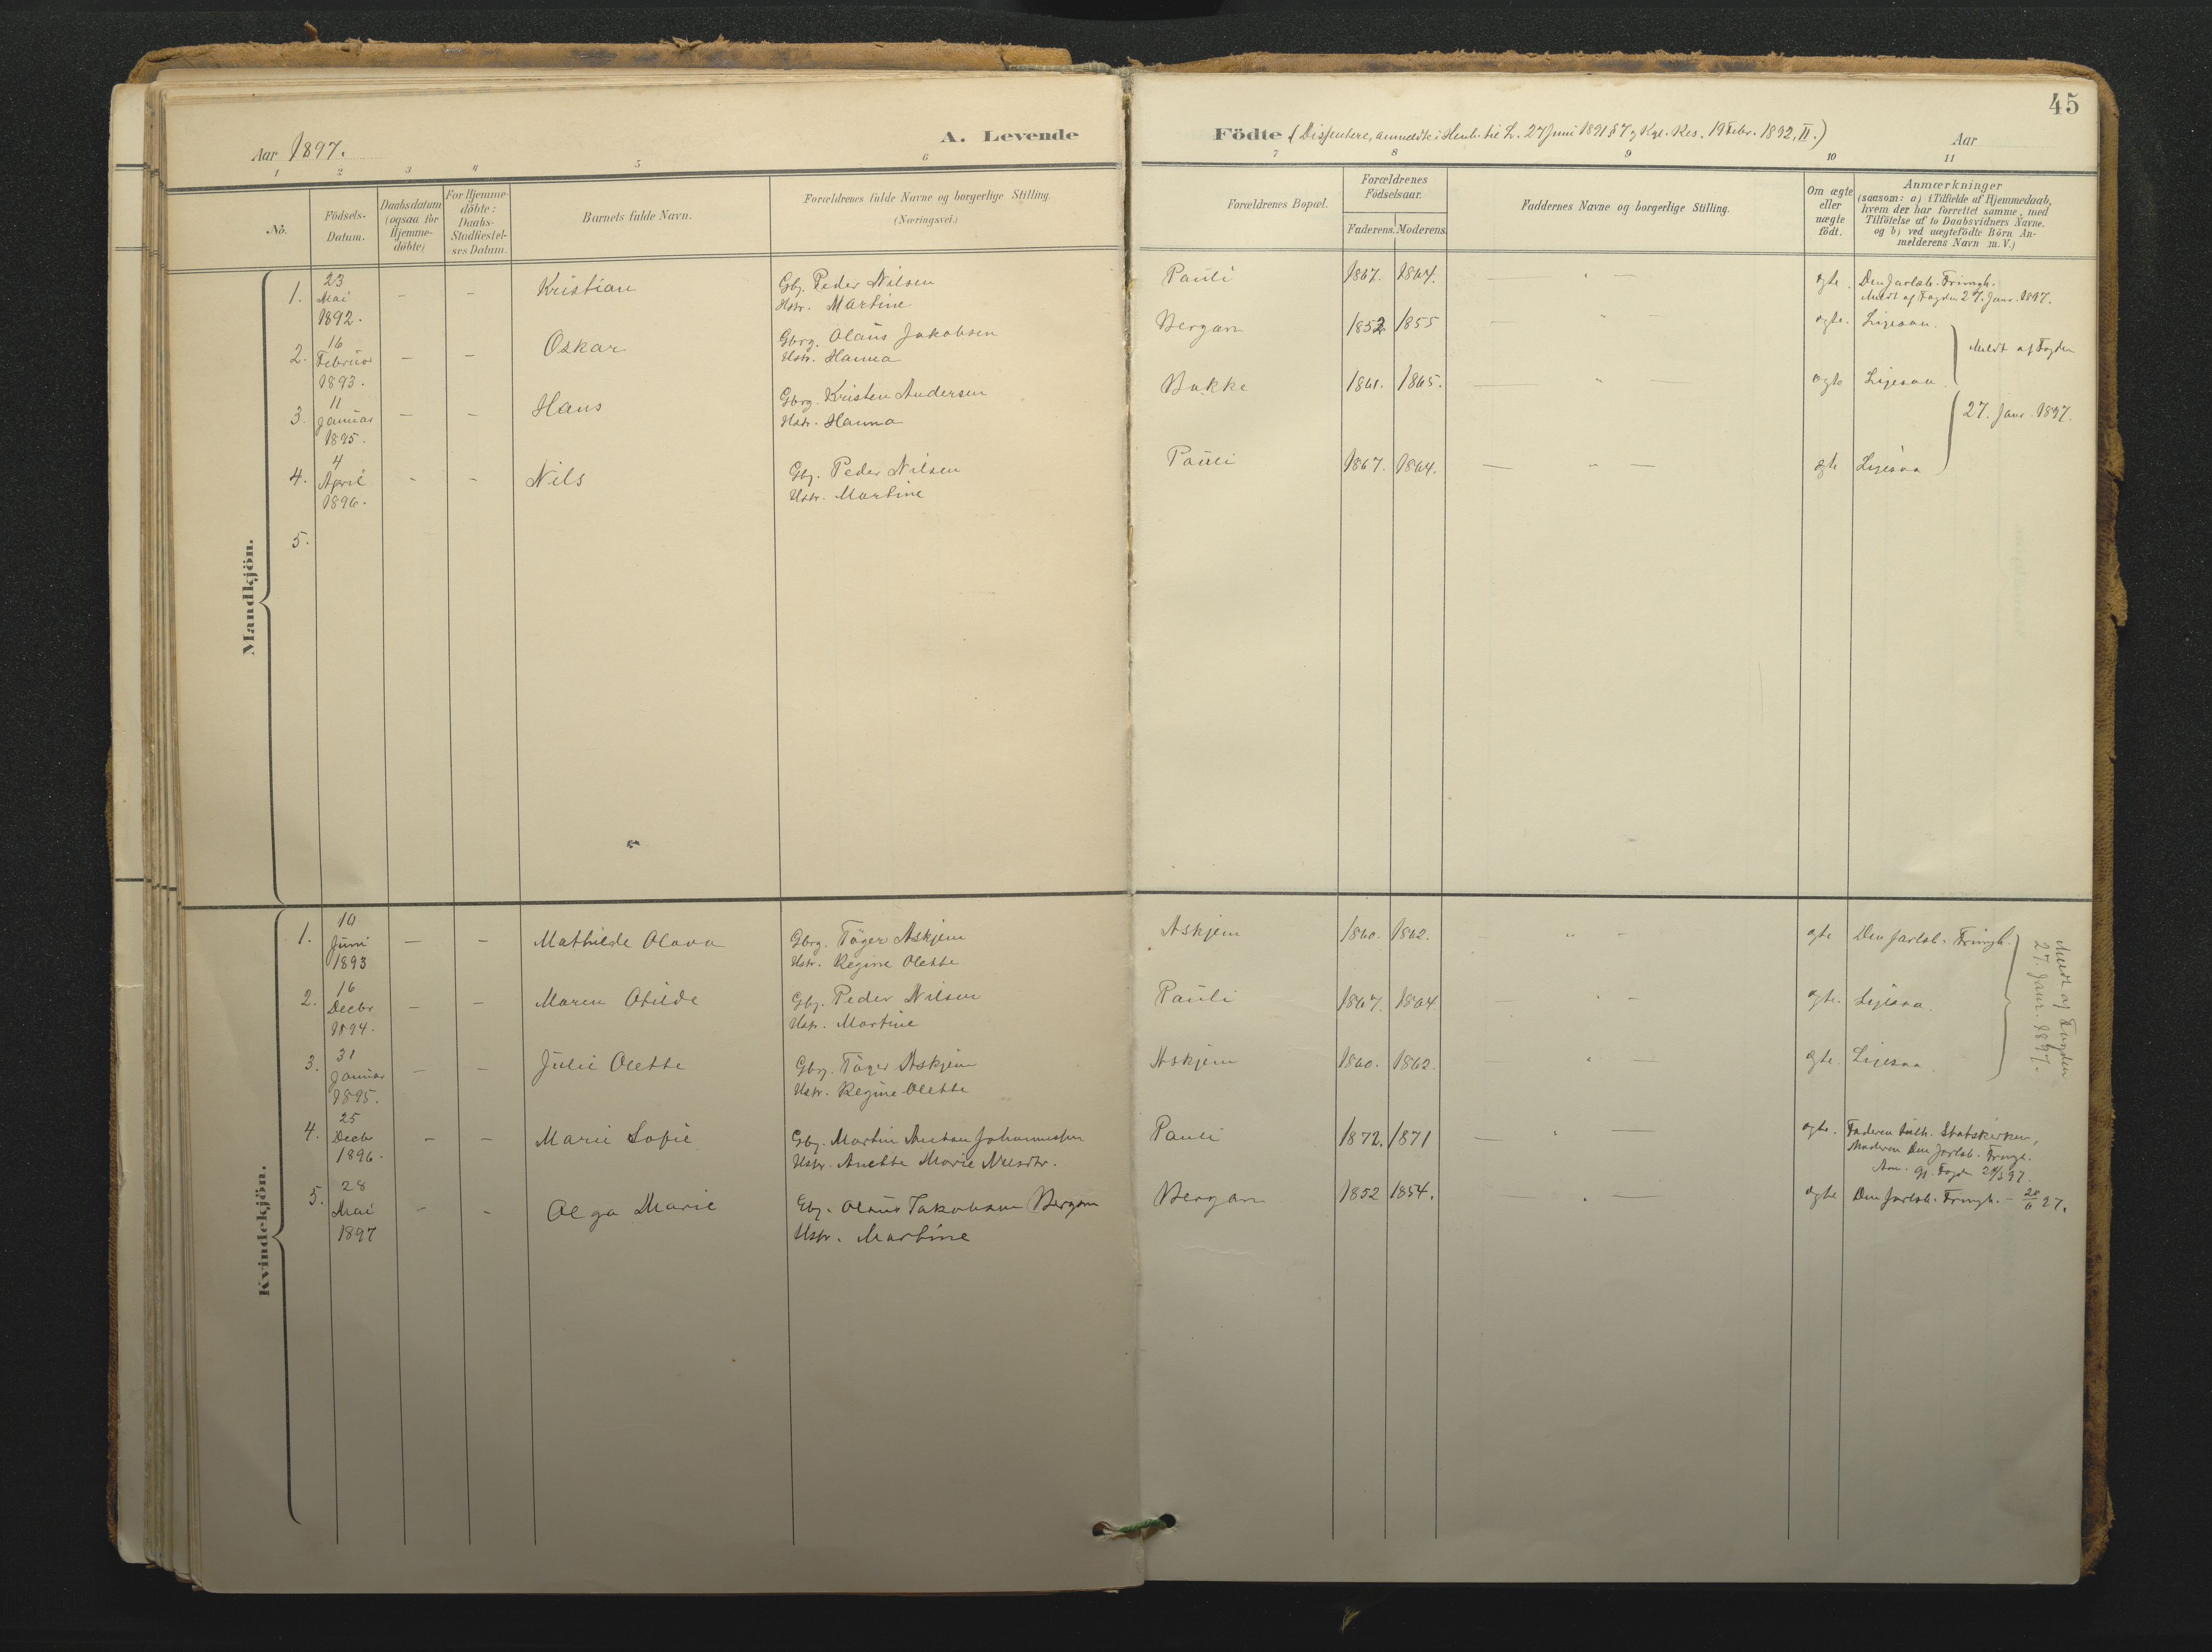 45
Aar 1897.
A. Levende Födte (Dissentere, anmeldte i Henh. til L. 27 Juni 1891 § 7 og Kgl. Res. 19 Febr. 1892, II.)
Aar
1 2 3 4 5 6 7 8 9 10 11
No.
Födsels-
Datum.
Daabsdatum
(ogsaa for
Hjemme-
döbte)
For Hjemme-
döbte:
Daabs-
Stadfæstel-
ses Datum.
Barnets fulde Navn.
Forældrenes fulde Navne og borgerlige Stilling.
(Næringsvei.)
Forældrenes Bopæl.
Forældrenes
Födselsaar.
Faderens. Moderens.
Faddernes Navne og borgerlige Stilling.
Om ægte
eller
uægte
födt.
Anmærkninger
(saasom: a) i Tilfælde af Hjemmedaab,
hvem der har forrettet samme, med
Tilföielse af to Daabsvidners Navne.
og b) ved uægtefödte Börn An-
melderens Navn m. V.)
Mandkjön.
1. 23 Mai 1892. – – Kristian Gbg. Peder Nilsen Pauli 1867. 1864. — " — ægte. Den Jarlsb. Frimgh.
Hstr. Martine Meldt af Fogden 27. Janr. 1897.
2. 16 Februar 1893. – – Oskar Gbrg. Olaus Jakobsen Bergan 1852 1855 — " — ægte. Ligesaa.
Hstr. Hanna
Meldt af Fogden
3. 11 Januar 1895. – – Hans Gbrg. Kristen Andersen Bakke 1861. 1865. — " — ægte Ligesaa.
Hstr. Hanna
27. Janr. 1897.
4. 4 April 1896. - - Nils Gbg. Peder Nilsen Pauli 1867. 1864. — " — ægte Ligesaa
Hstr. Martine
5.
Kvindekjön.
1. Juni 1893 – – Mathilde Olava Gbrg. Töger Askjem Askjem 1860. 1862. — " — ægte Den Jarlsb. Frimgh.
Hstr. Regine Olette
Meldt af Fogden
27. Janr. 1897.
2. 16 Decbr 1894. – – Maren Otilde Gbg. Peder Nilsen Pauli 1867. 1864. — " — ægte. Ligesaa.
Hstr. Martine
3. 31 Januar 1895. – – Julie Olette Gbg. Töger Askjem Askjem 1860. 1862. — " — ægte. Ligesaa.
Hstr. Regine Olette
4. 25 Decbr 1896. – – Marie Sofie Gbg. Martin Anton Johannessen Pauli 1872. 1871 — " — ægte. Faderen Statskirken,
Hstr. Anette Marie Nilsdtr. Moderen Den Jarlsb. Frmgh.
Fogden
5. 28 Mai 1897 – – Olga Marie Gbg. Olaus Jakobsen Bergan Bergan 1852 1854. — " — ægte Den Jarlsb. Frmgh. – 28/6 97.
Hstr. Martine